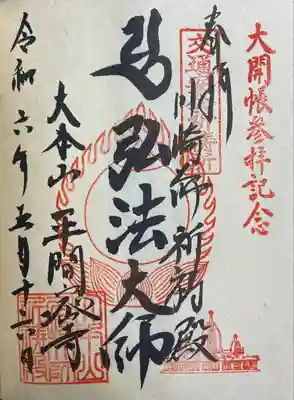 大開帳參拝記念
奉拝
川崎 祈祷殿
弘法大師
大本山 平間寺
令和六年五月十六日
交通